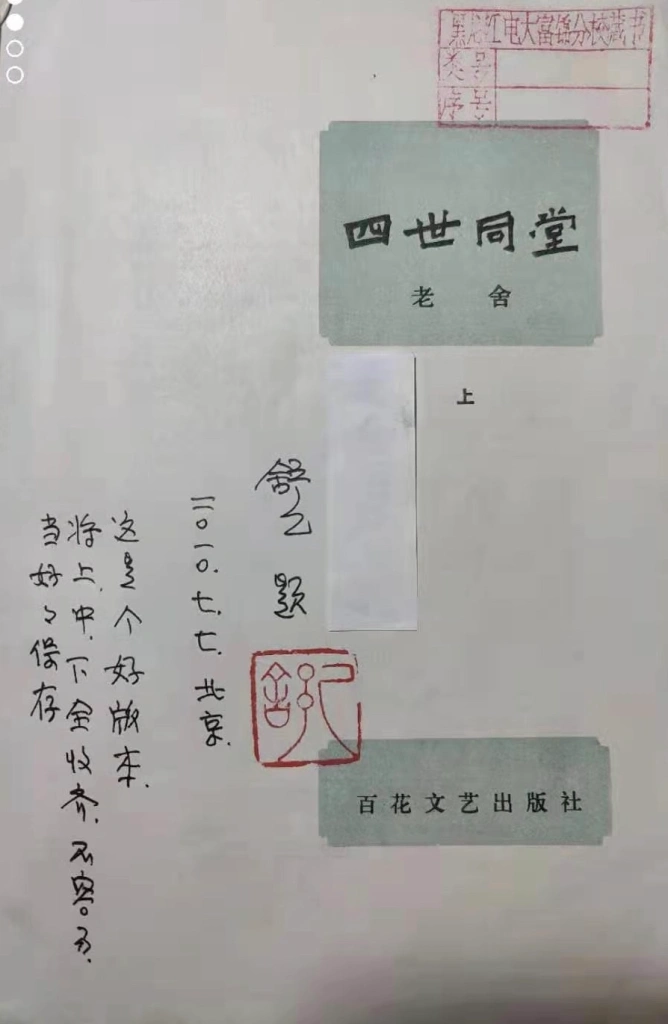 黑龙江电大富锦分校藏书
类号
序号
四世同堂
老舍
上
舒乙 题
二〇一〇.七.七.北京.
这是个好版本.
将上.中.下全收齐.不容易.
当好々保存
百花文艺出版社